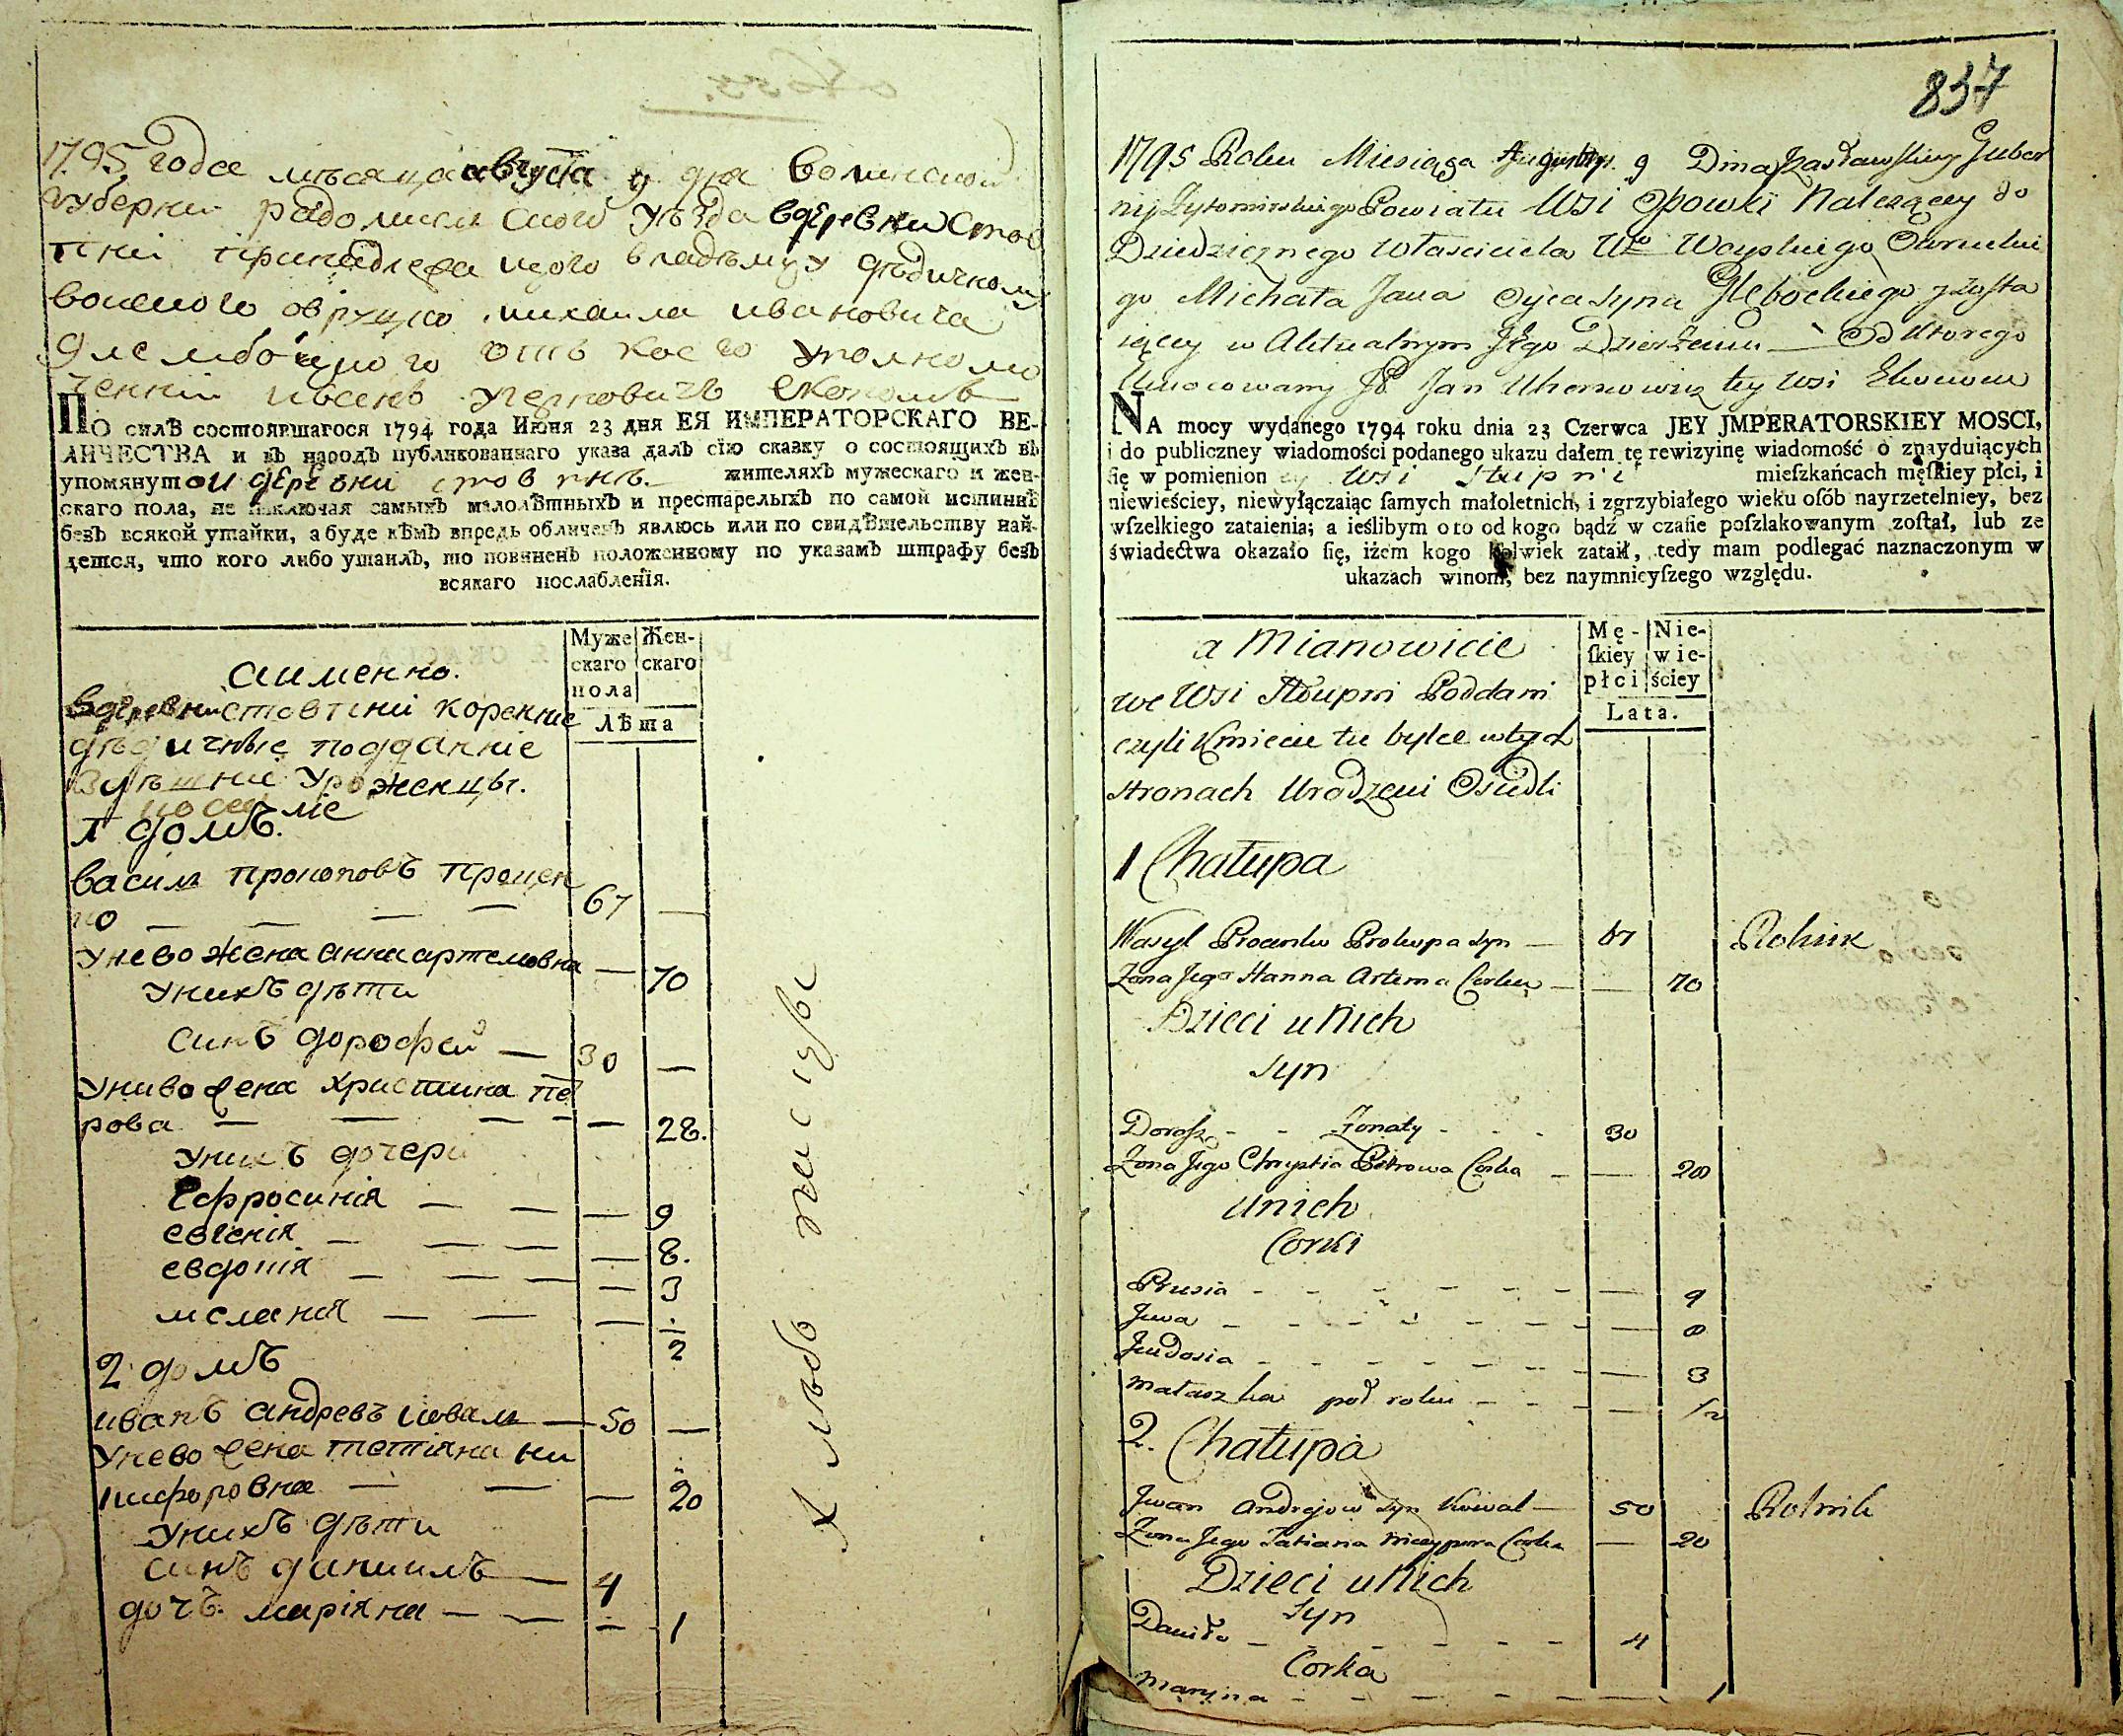 1795 годсе мѣсяца августа 9 дня волинской
губернии радомисл ского уѣзда вдеревни Стов
пни принадлежа щого владѣмцу дѣдичному
михаила ивановича
отъ коего уполномо
ченнии экономъ
ПО силѣ состоявшагося 1794 года Июня 23 дня ЕЯ ИМПЕРАТОРСКАГО ВЕ-
ЛИЧЕСТВА и въ народъ публикованнаго указа далъ сїю сказку о состоящихъ въ
упомянутои деревни стовпнѣ жителяхъ мужескаго и жен-
скаго пола, не изключая самыхъ малолѣтныхъ и престарелыхъ по самой истиннѣ
безъ всякой утайки, а буде кѣмъ впредь обличенъ явлюсь или по свидѣтельству най-
дется, что кого либо утаилъ, то повиненъ положенному по указамъ штрафу безъ
всякаго послабленїя.
Муже скаго пола
Жен- скаго
Лѣта
аименно.
вдеревни стовпни корение
дѣдичные подданніе
здѣшние уроженцы.
1 домъ.
василь прокоповъ процен
ко — — — — 67 —
унево жена анна артемовна — 70
унихъ дѣти
синъ дорофей — 30 —
униво жена христина пе
трова — — — — — 28.
унихъ дочери
ефросинія — — — 9
евгенія — — — — 8.
евдокія — — — — 3
меланія — — — 1/2
2 домъ
иванъ андревъ коваль — 50 —
унево жена тетіяна ни
кифоровна — — — 20
унихъ дѣти
синъ данилъ — 4
дочъ. маріяна — — — 1
хлѣбо пашцы
837
1795 Roku Miesiąca Augusta 9 Dnia Zasławskiey Guber
nij Żytomirskiego Powiatu Wsi Należącey do
Dziedzicznego Właściciela Wo Woyskiego Owruckie
go Michała Jana Oyca syna Głębockiego zosta
iącey w Aktualnym Jego Dzierżeniu — Od którego
Umocowany JP Jan tey wsi Ekonom
NA mocy wydanego 1794 roku dnia 23 Czerwca JEY JMPERATORSKIEY MOSCI,
i do publiczney wiadomości podanego ukazu dałem tę rewizyinę wiadomość o znayduiących
się w pomienion ey Wsi Stupni mieſzkańcach męſkiey płci, i
niewieściey, niewyłączaiąc ſamych małoletnich, i zgrzybiałego wieku oſób nayrzetelniey, bez
wſzelkiego zataienia; a ieślibym o to od kogo bądź w czaſie poſzlakowanym zoſtał, lub ze
świadectwa okazało ſię, iżem kogo kolwiek zataił, tedy mam podlegać naznaczonym w
ukazach winom, bez naymnieyſzego względu.
Mę- ſkiey płci
Nie- wie- ściey
Lata.
a Mianowicie
we Wsi Stupni Poddani
czyli Kmiecie tu tylce w tych
stronach Urodzeni Osiedli
1 Chałupa
Wasyl Procenko Prokopa syn — 67 Rolnik
Żona Jego Hanna Artema Corka — — 70
Dzieci u Nich
syn
Dorosz - - Żonaty - - - 30
Żona Jego Chrystia Petrowa Corka — — 28
u nich
Corki
Prusia - - - - - - — 9
Jewa - - - - - - — 8
Jeudosia - - - - - - — 3
Małaszka pół roku - - - — 1/2
2. Chałupa
Jwan Andrejow syn Kowal — 50 Rolnik
Żona Jego Tatiana Nieczypora Corka — 20
Dzieci u Nich
syn
Daniło - - - - - - 4
Corka
Maryna - - - - - — 1